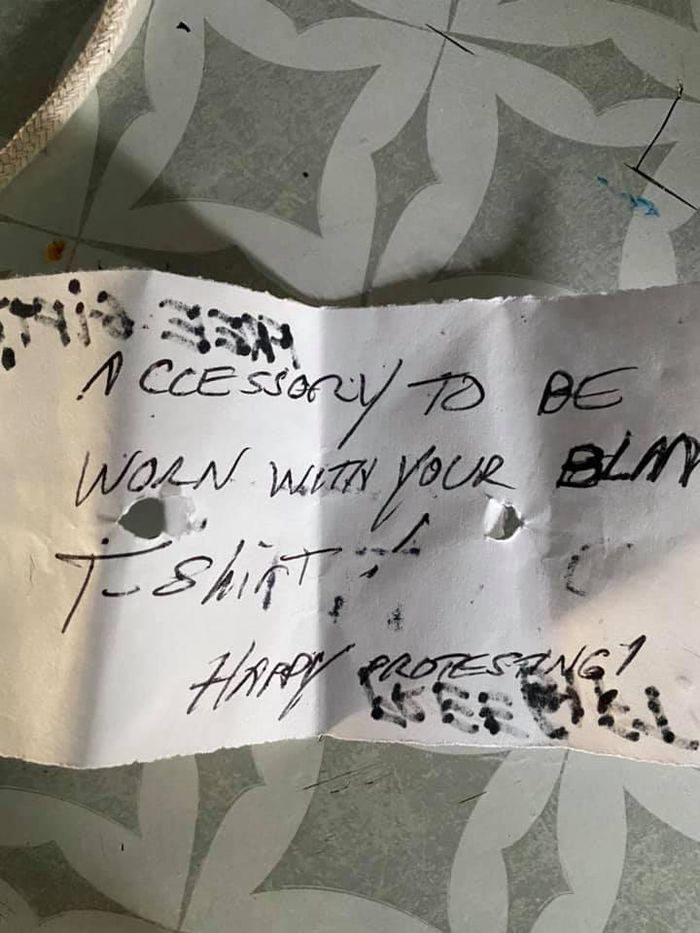 ACCESSORY TO BE
WORN WITH YOUR BLM
T-Shirt!
HAPPY PROTESTING!